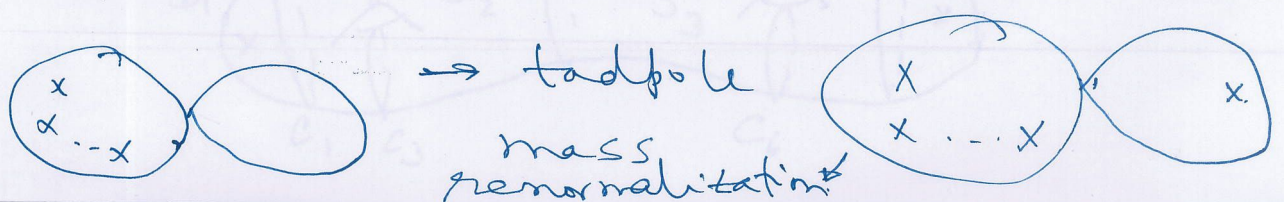 x
α
. . - x
→ tadpole
mass
renormalization
x
x . - . x
x